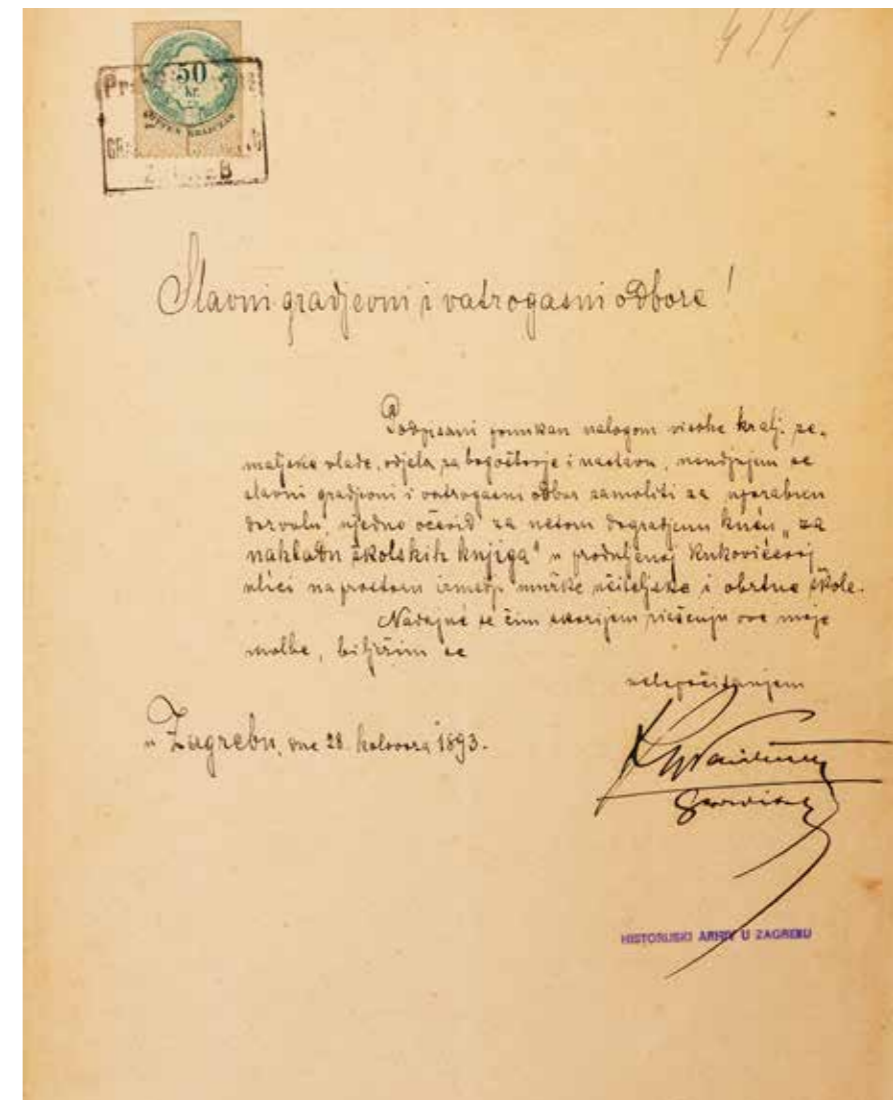 414
50
kr.
ZAGREB
Slavni gradjevni i vatrogasni odbore!
Podpisani ponukan nalogom visoke kralj. ze-
maljske vlade, odjela za bogoštovje i nastavu, usudjujem se
slavni gradjevni i vatrogasni odbor zamoliti za uporabnu
dozvolu, ujedno očevid za netom dogradjenu kuću „za
nakladu školskih knjiga“ u produljenoj Kukovićevoj
ulici na prostoru izmedju mužke učiteljske i obrtne škole.
Nadajuć se čim skorijem riešenju ove moje
molbe, bilježim se
veleštovanjem
u Zagrebu, dne 28. kolovoza 1893.
HISTORIJSKI ARHIV U ZAGREBU